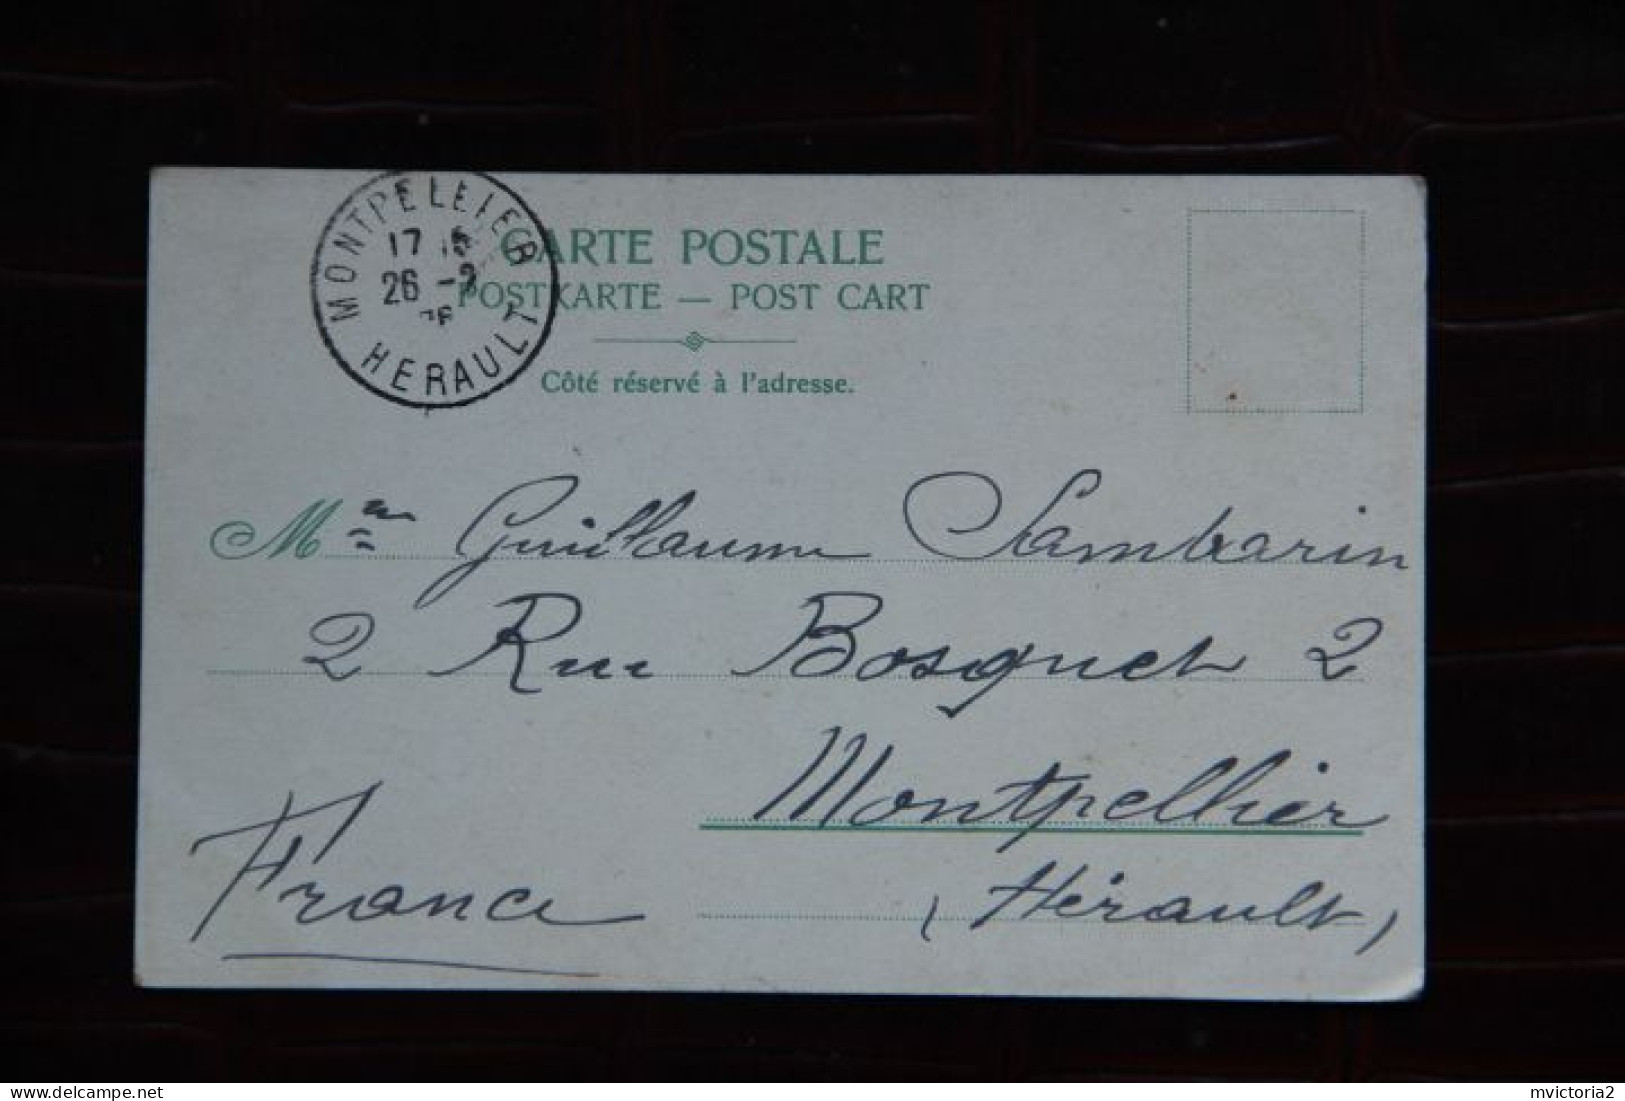 MONTPELLIER
17
26 -2
HERAULT
CARTE POSTALE
POSTKARTE — POST CART
Côté réservé à l'adresse.
Guillaume Sambarin
2 Rue Bosquet 2
Montpellier
France
(Hérault)
mvictoria2